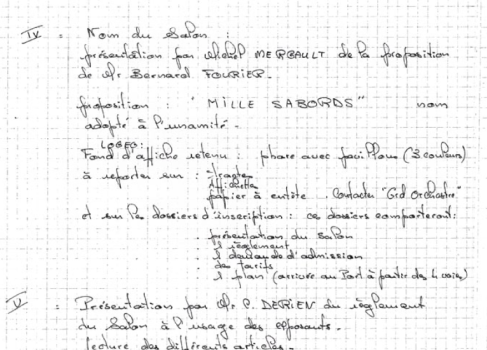 IV : Nom du Salon :
présentation par Michel MERCAULT de la proposition
de Mr Bernard FOURIER.
proposition : "MILLE SABORDS" nom
adopté à l'unamité.
LOGEO:
Fond d'affiche retenu : phare avec pavillons (3 couleurs)
à reporter sur :
Affichette
papier à entête . Contacter "Grd Orchestre"
et sur les dossiers d'inscription : ce dossiers comporteront:
. présentation du Salon
. 1 règlement
. 1 demande d'admission
. des tarifs
. 1 plan (arrivée au Port à partir des 4 voies)
V : Présentation par Mr P. DERIEN du règlement
du Salon à l'usage des exposants.
lecture des différents articles.